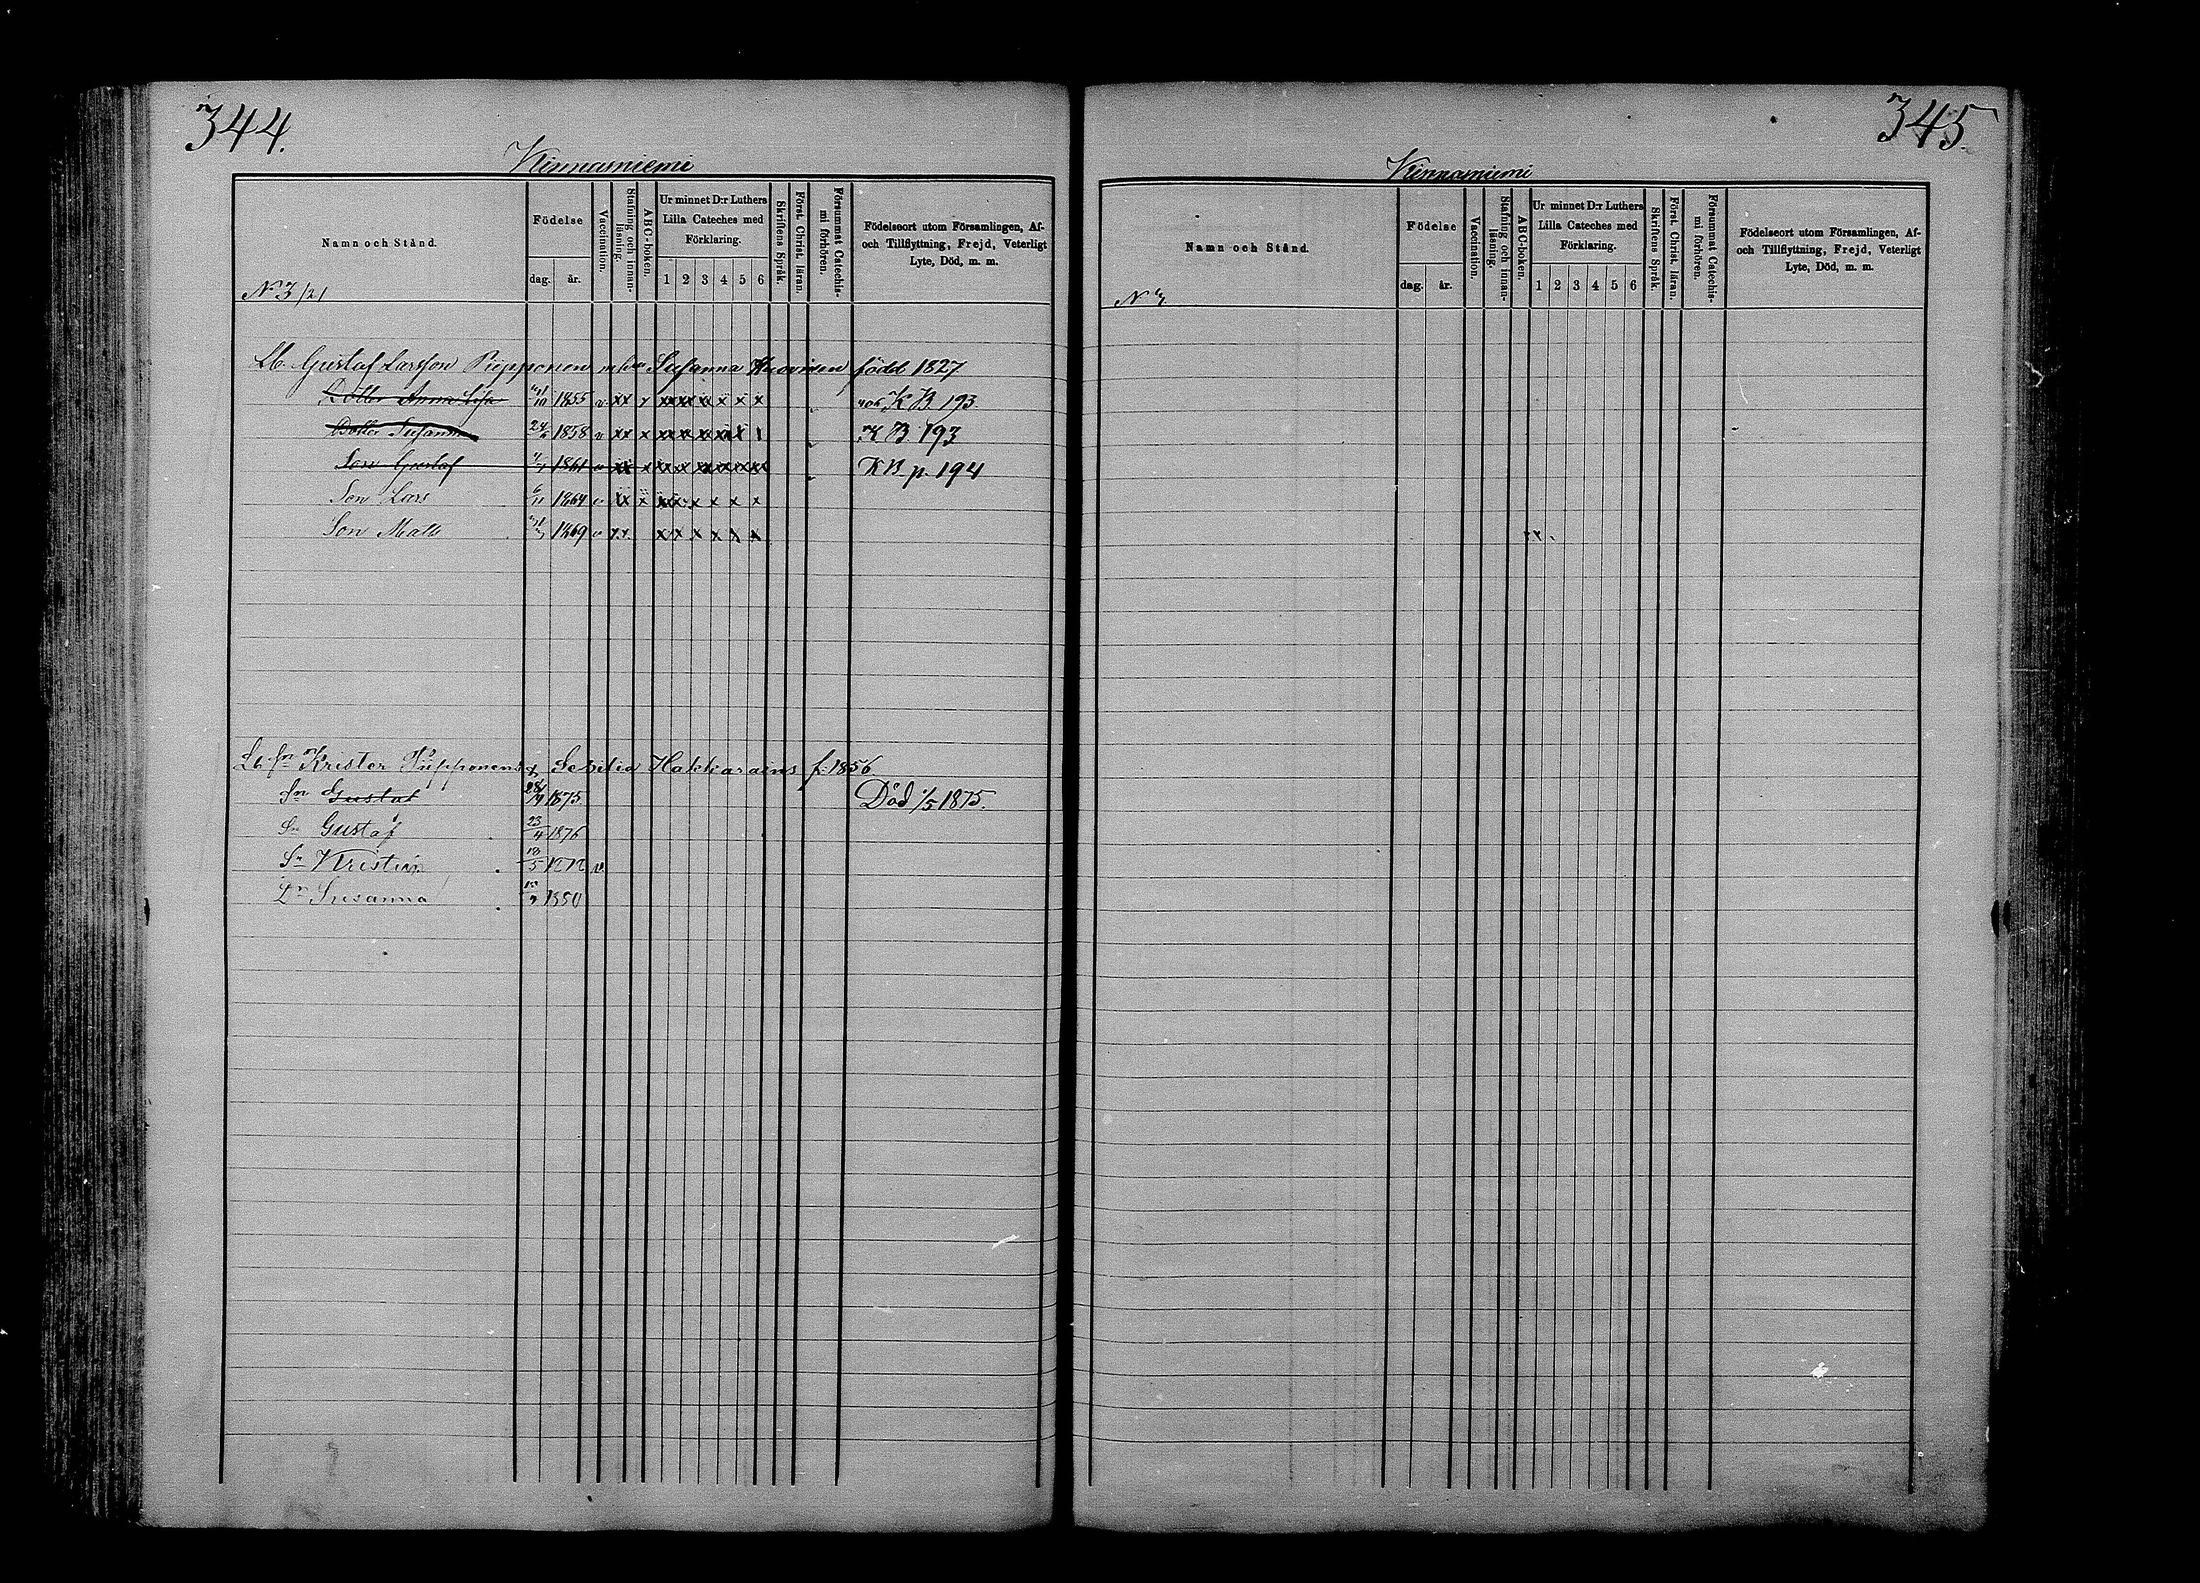 344.
Kinnarniemi
Namn och Stånd.
Födelse
dag. år.
Vaccination.
Stafning och innanläsning.
ABC-boken.
Ur minnet D:r Luthers
Lilla Cateches med
Förklaring.
1 2 3 4 5 6
Skriftens Språk.
Först. Christ. läran.
Försummat Catechismi förhören.
Födelseort utom Församlingen, Af-
och Tillflyttning, Frejd, Veterligt
Lyte, Död, m. m.
N 3 /2/
Lb. Gustaf Larsson Piipponen m hu Susanna Kuovinen född 1827
Dotter Anna Lisa 1855 v. xx x x x x x x x K B. 193
Dotter Susanna 1858 v xx x x x x x x K B 193
Son Gustaf 1861 v xx x x x x x x x K B p. 194
Son Lars 6/11 1864 v xx x x x x x x x
Son Matts 1869 v xx. x x x x x x
Lb. sn Krister Piipponen Sesilia Hakkarains f. 1856.
Sn Gustaf 1875 Död 1/5 1875.
Sn Gustaf 23/4 1876
Sn Kristian 18/5 v.
Dr Susanna
345.
Kinnarniemi
Namn och Stånd.
Födelse
dag. år.
Vaccination.
Stafning och innanläsning.
ABC-boken.
Ur minnet D:r Luthers
Lilla Cateches med
Förklaring.
1 2 3 4 5 6
Skriftens Språk.
Först. Christ. läran.
Försummat Catechismi förhören.
Födelseort utom Församlingen, Af-
och Tillflyttning, Frejd, Veterligt
Lyte, Död, m. m.
N 3.